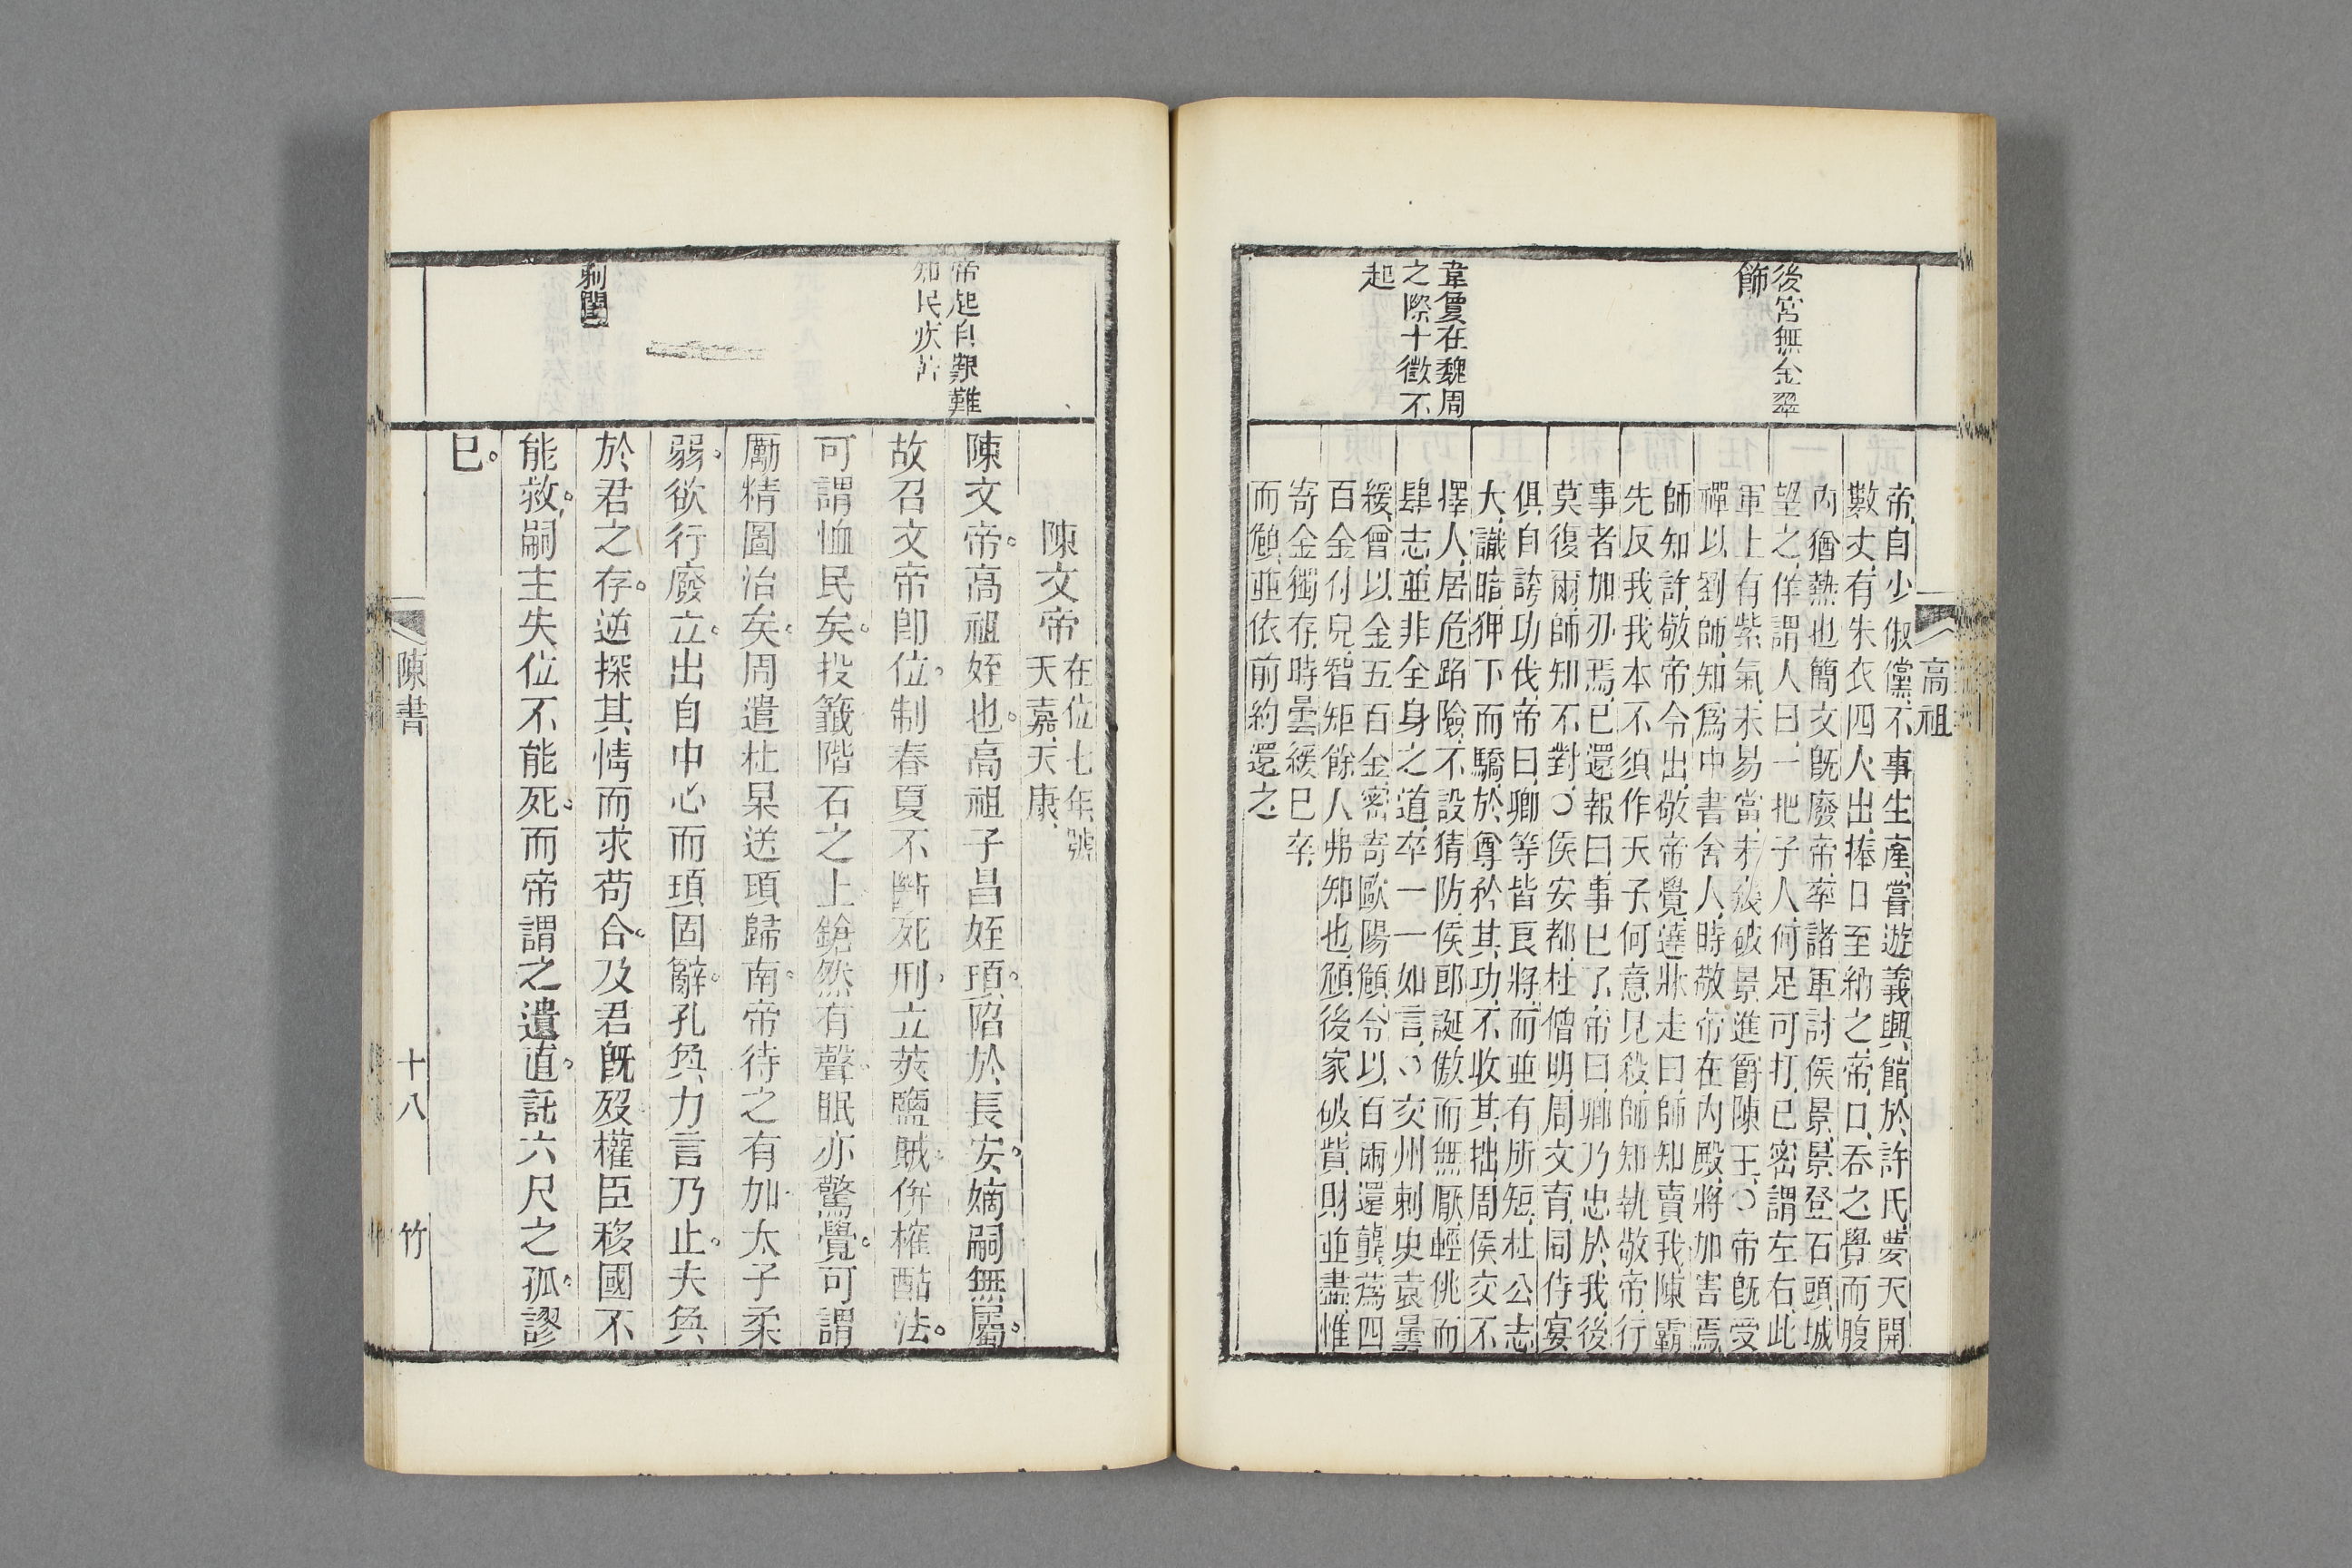 高祖
後宮無金翠
飾
韋敻在魏周
之際十徵不
起
帝自少俶儻不事生產嘗遊義興館於許氏夢天開
數丈有朱衣四人出捧日至納之帝口吞之覺而腹
內猶熱也簡文旣廢帝率諸軍討侯景景登石頭城
望之佯謂人曰一把子人何足可打已密謂左右此
軍上有紫氣未易當未幾破景進爵陳王○帝旣受
禪以劉師知爲中書舍人時敬帝在內殿將加害焉
師知詐敬帝令出敬帝覺遶牀走曰師知賣我陳霸
先反我我本不須作天子何意見殺師知執敬帝行
事者加刃焉已還報曰事已了帝曰卿乃忠於我後
莫復爾師知不對○侯安都杜僧明周文育同侍宴
俱自誇功伐帝曰卿等皆良將而並有所短杜公志
大識暗狎下而驕於尊矜其功不收其拙周侯交不
擇人居危蹈險不設猜防侯郎誕傲而無厭輕佻而
肆志並非全身之道卒一一如言○交州刺史袁曇
緩曾以金五百金密寄歐陽頠令以百兩還龔蒍四
百金付兒智矩餘人弗知也頠後家破貲財並盡惟
寄金獨存時曇緩已卒
而頠並依前約還之
帝起自艱難
知民疾苦
刺閨
陳文帝在位七年號
天嘉天康
陳文帝高祖姪也高祖子昌姪頊陷於長安嫡嗣無屬
故召文帝卽位制春夏不斷死刑立莢鹽賊倂榷酤法
可謂恤民矣投籤階石之上鎗然有聲眠亦驚覺可謂
勵精圖治矣周遣杜杲送頊歸南帝待之有加太子柔
弱欲行廢立出自中心而頊固辭孔奐力言乃止夫奐
於君之存逆探其情而求苟合及君旣歿權臣移國不
能救嗣主失位不能死而帝謂之遺直託六尺之孤謬
巳
陳書
十八
竹